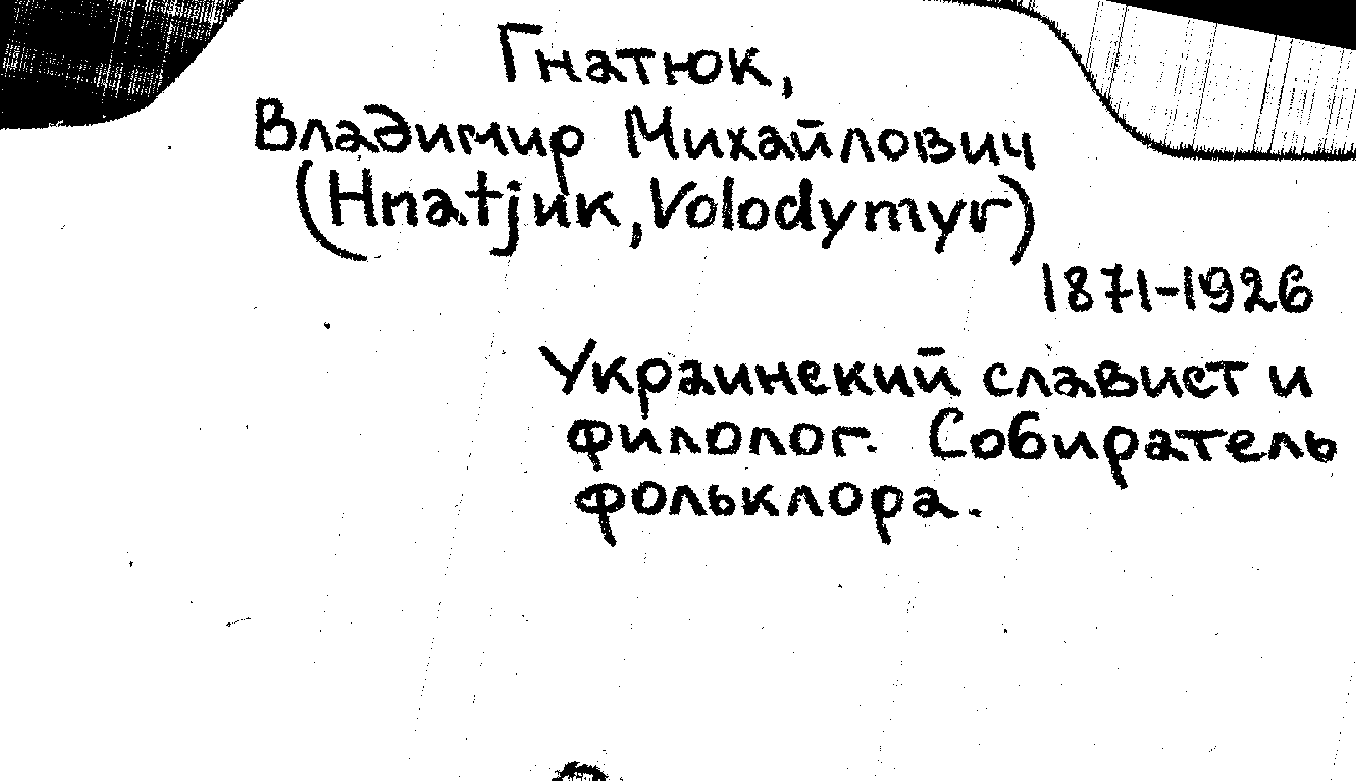 Гнатюк,
Владимир Михайлович
(Hnatjuk, Volodymyr)
1871-1926
Украинский славист и
филолог. Собиратель
фольклора.